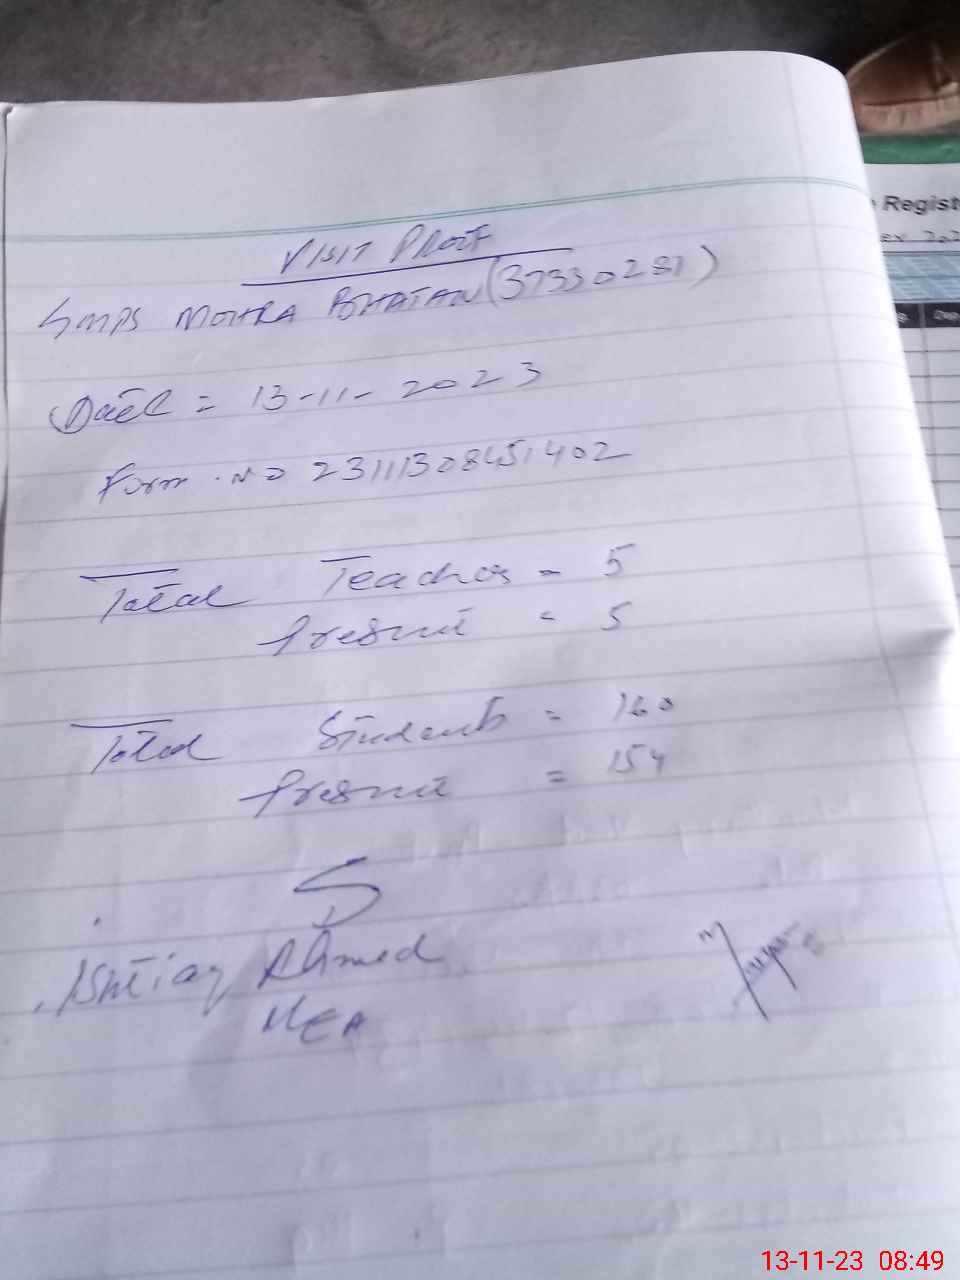 VISIT PROOF
GMPS MOHRA BHATAN (37330281)
Date = 13-11-2023
Form . NO 23111308451402
Total Teachers = 5
Present = 5
Total Students = 160
Present = 154
Ishtiaq Ahmed
MEA
Regist
13-11-23 08:49